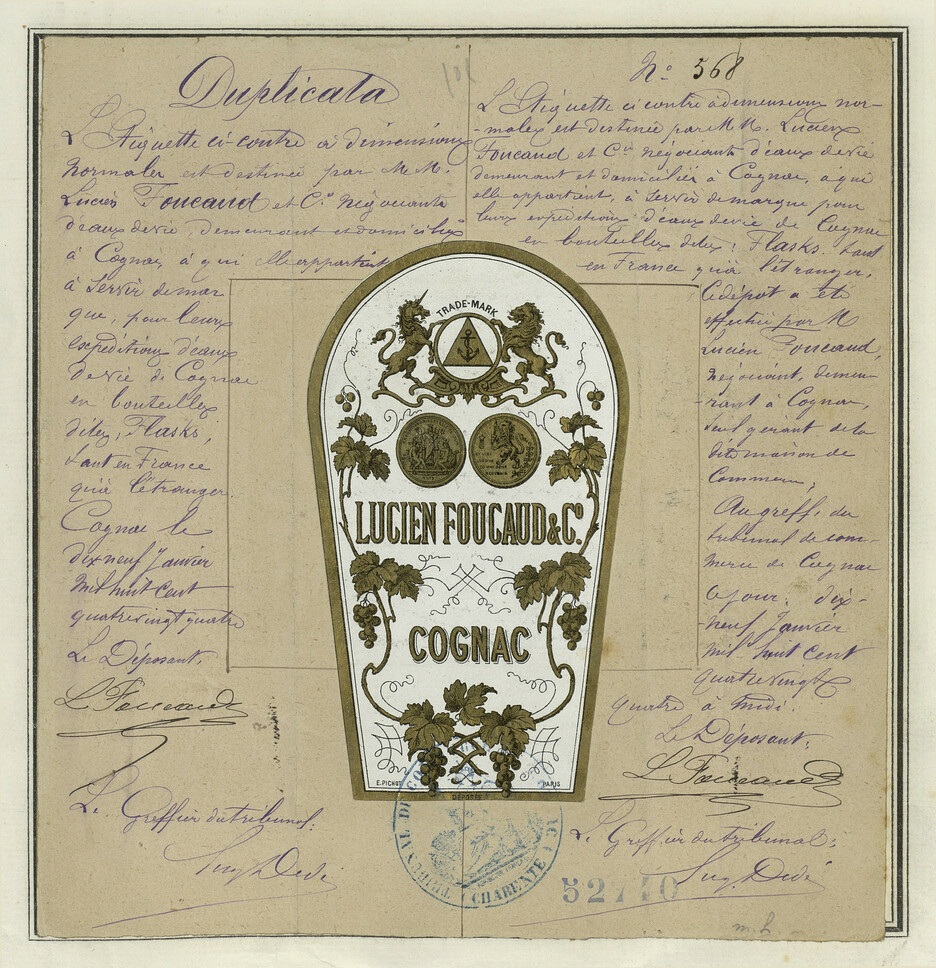 Duplicata
L'Etiquette ci-contre à dimensions
normales est destinée par M M.
Lucien Foucaud et Cie négociants
d'eaux de vie, demeurant et domiciliés
à Cognac, à qui elle appartient,
à servir de mar
que, pour leurs
expéditions d'eaux
de vie de Cognac
en bouteilles
dites, Flasks,
tant en France
qu'à l'étranger.
Cognac le
dix neuf Janvier
mil huit cent
quatre vingt quatre
Le Déposant,
L Foucaud
Le Greffier du tribunal:
Dédé
No 568
L'Etiquette ci contre à dimensions nor-
-males est destinée par M M. Lucien
Foucaud et Cie négociants d'eaux de vie
demeurant et domiciliés à Cognac, à qui
elle appartient, à servir de marque pour
leurs expéditions d'eaux de vie de Cognac
en bouteilles dites: Flasks. tant
en France qu'à l'étranger.
Le dépôt a été
effectué par M
Lucien Foucaud,
négociant, demeu-
-rant à Cognac,
seul gérant de la
dite maison de
Commerce,
Au greffe du
tribunal de com-
merce de Cognac
ce jour, dix-
-neuf Janvier
mil huit cent
quatre vingt
quatre à midi.
Le Déposant,
L. Foucaud
Le Greffier du tribunal:
Dédé
TRADE-MARK
LUCIEN FOUCAUD & Co.
COGNAC
E. PICHOT
PARIS
DÉPOSÉE
TRIBUNAL DE CO
CHARENTE
52710